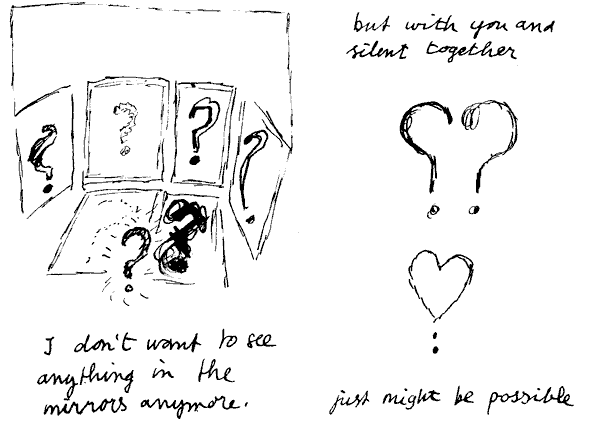 I don't want to see
anything in the
mirrors anymore.
but with you and
silent together
just might be possible